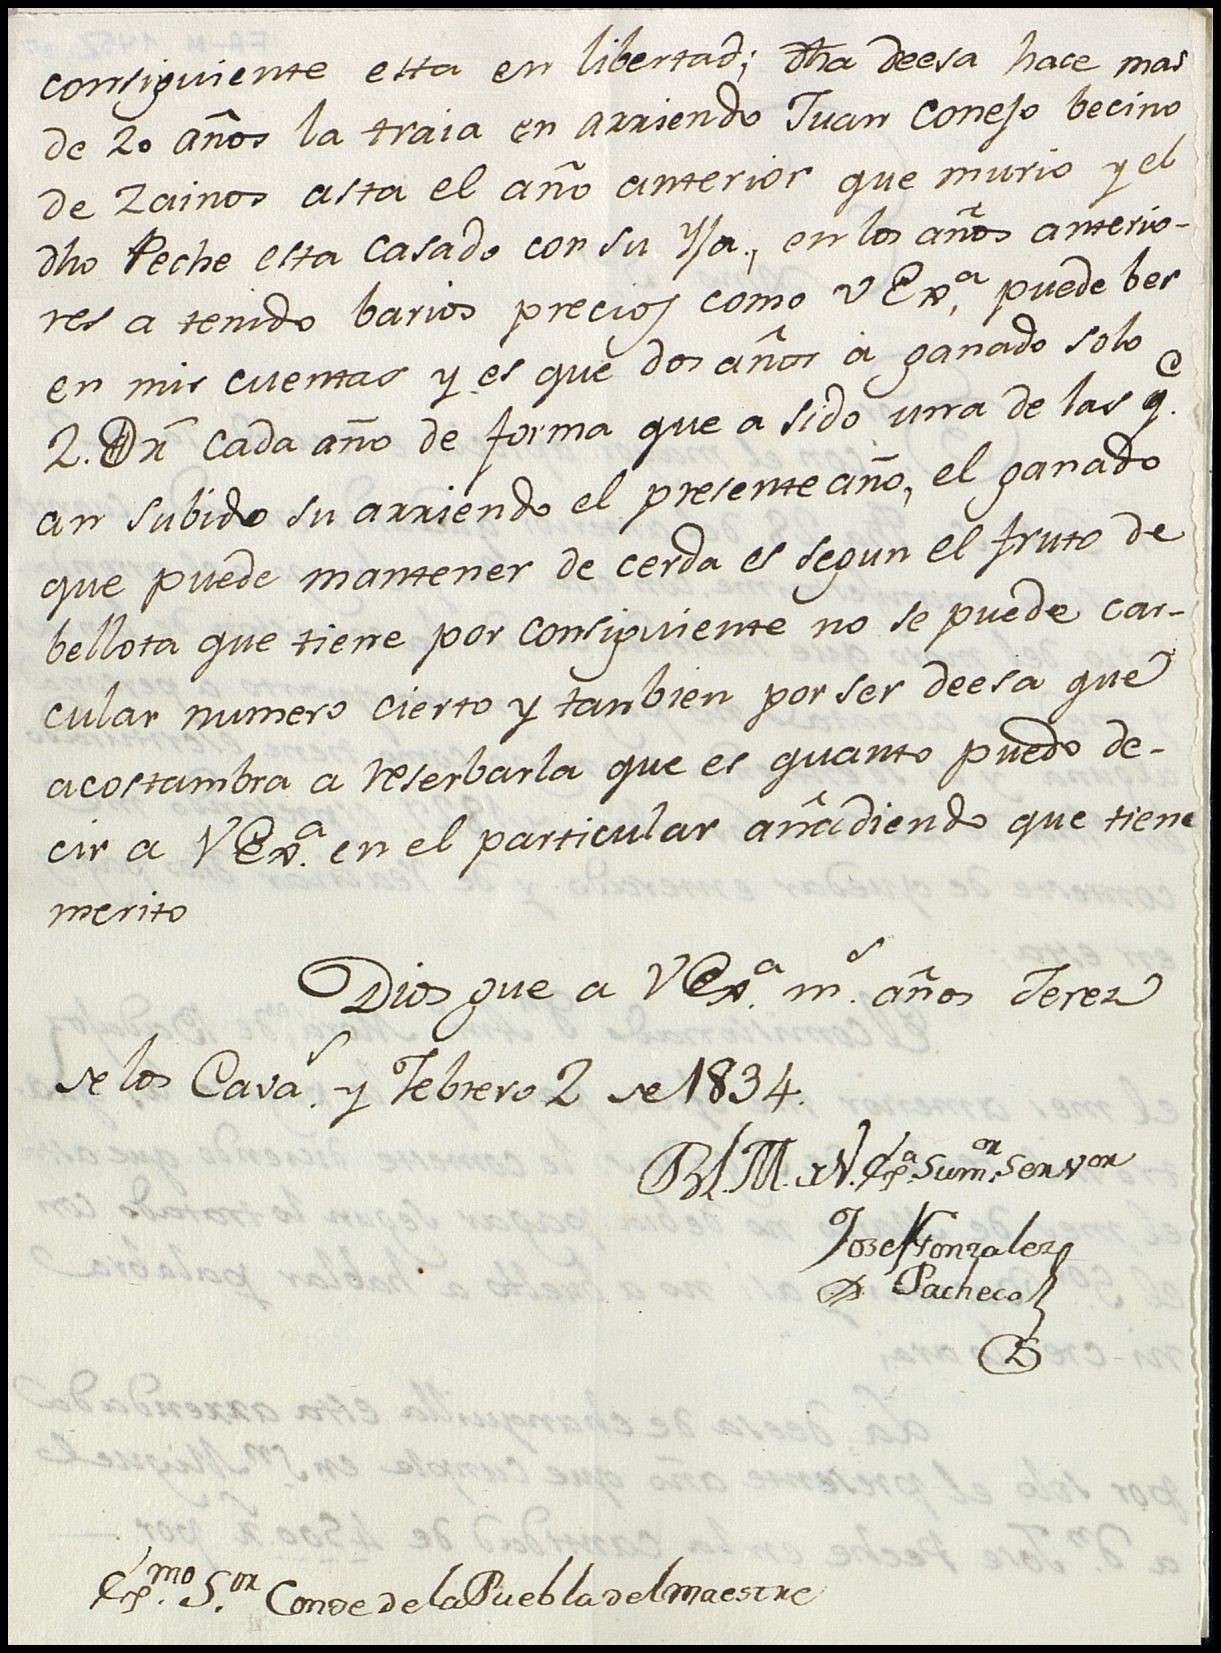 consiguiente esta en libertad; dha deesa hace mas
de 20 años la traia en arriendo Juan Conejo becino
de Zainos asta el año anterior que murio y el
dho Peche esta casado con su Yja, en los años anterio-
res a tenido barios precios como V Exª, puede ber
en mis cuentas y es que dos años a ganado solo
2.Ɗ rˢ cada año de forma que a sido una de las q.ᵉ
an subido su arriendo el presente año, el ganado
que puede mantener de cerda es segun el fruto de
bellota que tiene por consiguiente no se puede car-
cular numero cierto y tanbien por ser deesa que
acostambra a reserbarla que es quanto puedo de-
cir a V Ex.ª en el particular añadiendo que tiene
merito
Dios gue a V Ex.ª m.ˢ años Jerez
de los Cavaˢ. y Febrero 2 de 1834.
B.L.M. a V. Exª. su mʳ. Servᵒʳ
Jose Gonzalez
Pacheco
Exᵐᵒ. S.ᵒʳ Conde de la Puebla del Maestre